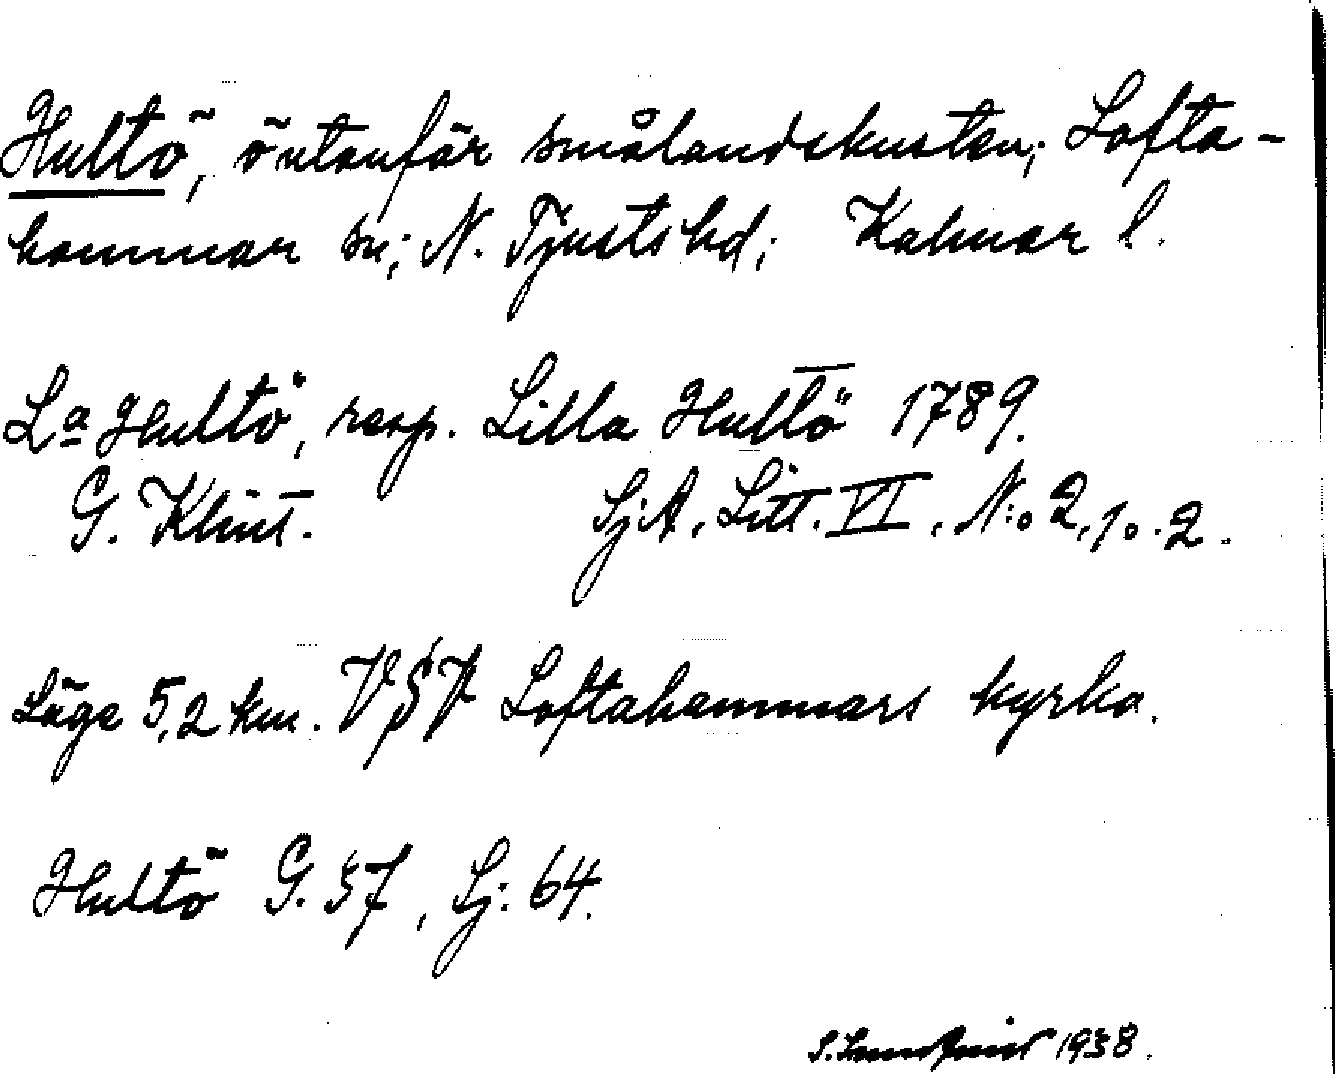 Hultö, ö utanför smålandskusten; Lofta-
hammar sn; N. Tjusts hd; Kalmar l.
La Hultö, resp. Lilla Hultö 1789.
G. Klint. SjA. Litt. VI. N:o 2, 1o. 2.
Läge 5,2 km. VSV Loftahammars kyrka.
Hultö G. 37, Sj: 64.
S. 1938.